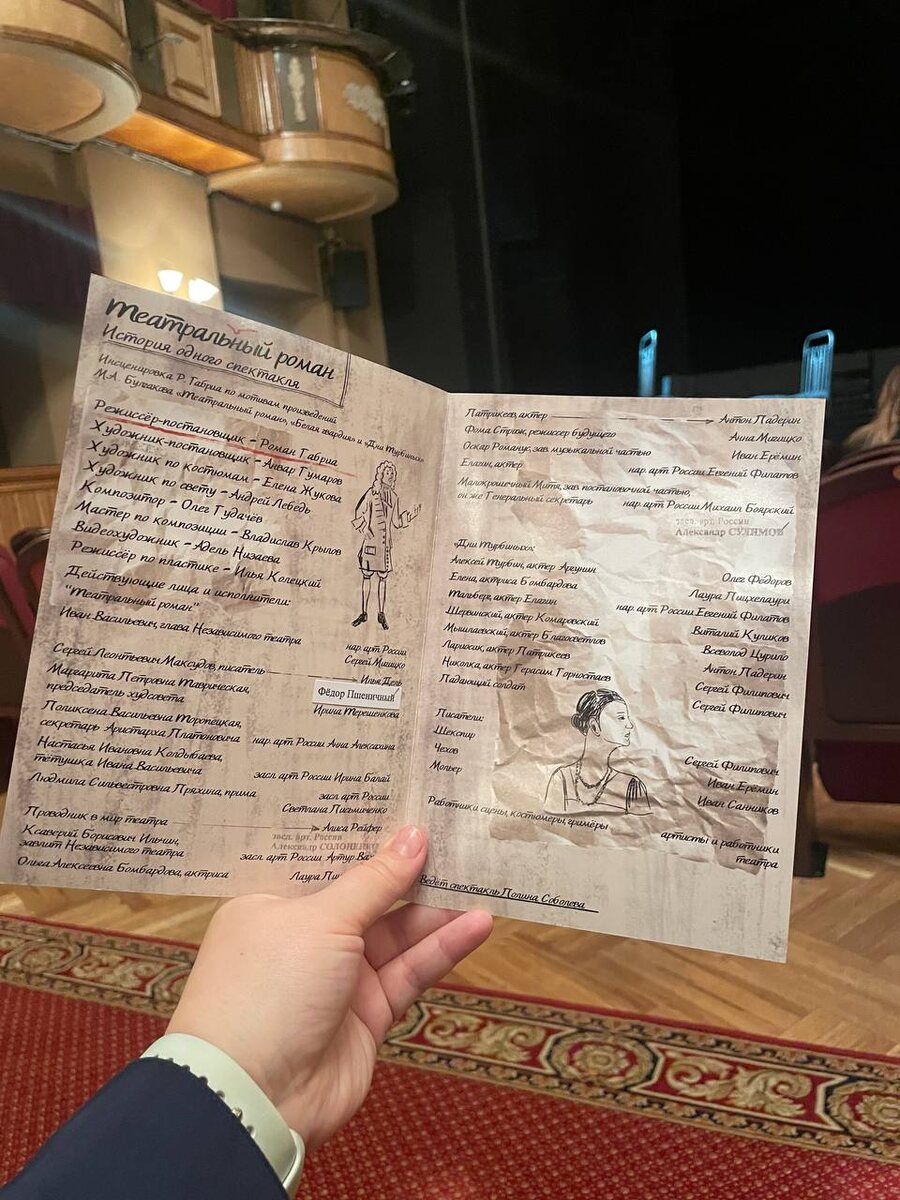 Театральный роман
История одного спектакля
Инсценировка Р. Габриа по мотивам произведений
М.А. Булгакова «Театральный роман», «Белая гвардия» и «Дни Турбиных»
Режиссёр-постановщик - Роман Габриа
Художник-постановщик - Анвар Гумаров
Художник по костюмам - Елена Жукова
Художник по свету - Андрей Лебедь
Композитор - Олег Гудачёв
Мастер по композиции - Владислав Крылов
Видеохудожник - Адель Низаева
Режиссёр по пластике - Илья Колецкий
Действующие лица и исполнители:
"Театральный роман"
Иван Васильевич, глава Независимого театра
нар. арт России
Сергей Мигицко
Сергей Леонтьевич Максудов, писатель Илья Дель
Фёдор Пшеничный
Маргарита Петровна Таврическая,
председатель худсовета Ирина Терешенкова
Поликсена Васильевна Торопецкая,
секретарь Аристарха Платоновича нар. арт России Анна Алексахина
Настасья Ивановна Колдыбаева,
тётушка Ивана Васильевича засл. арт России Ирина Балай
Людмила Сильвестровна Пряхина, прима засл. арт России
Светлана Письмиченко
Проводник в мир театра Алиса Рейфер
засл. арт. России
Александр СОЛОНЕНКО
Ксаверий Борисович Ильчин,
завлит Независимого театра засл. арт России Артур
Ольга Алексеевна Бомбардова, актриса Лаура
Патрикеев, актер Антон Падерин
Фома Стриж, режиссер будущего Анна Мигицко
Оскар Романус, зав. музыкальной частью Иван Ерёмин
Елагин, актер нар. арт России Евгений Филатов
Малокрошечный Митя, зав. постановочной частью,
он же Генеральный секретарь нар. арт России Михаил Боярский
засл. арт. России
Александр СУЛИМОВ
«Дни Турбиных»:
Алексей Турбин, актер Аргунин Олег Фёдоров
Елена, актриса Бомбардова Лаура Пицхелаури
Тальберг, актер Елагин нар. арт России Евгений Филатов
Шервинский, актер Комаровский Виталий Куликов
Мышлаевский, актер Благосветлов Всеволод Цурило
Лариосик, актер Патрикеев Антон Падерин
Николка, актер Герасим Горностаев Сергей Филипович
Падающий солдат Сергей Филипович
Писатели:
Шекспир Сергей Филипович
Чехов Иван Ерёмин
Мольер Иван Санников
Работники сцены, костюмеры, гримёры артисты и работники
театра
Ведёт спектакль Полина Соболева